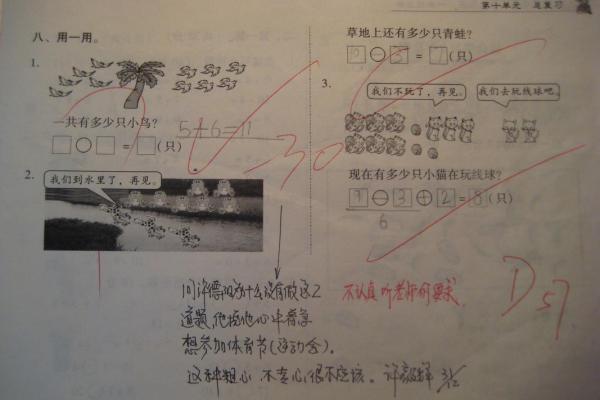 第十单元 总复习
八、用一用。
1.
一共有多少只小鸟?
5+6=11
□○□=□(只)
2.
我们到水里了,再见。
草地上还有多少只青蛙?
10-3=7(只)
3.
我们不玩了,再见。
我们去玩线球吧。
现在有多少只小猫在玩线球?
9-3+2=8(只)
6
-30
问许德阳为什么没有做这2
道题,他说他心中着急
想参加体育节(运动会)。
这种粗心、不专心,很不应该。
不认真听老师的要求
D 57